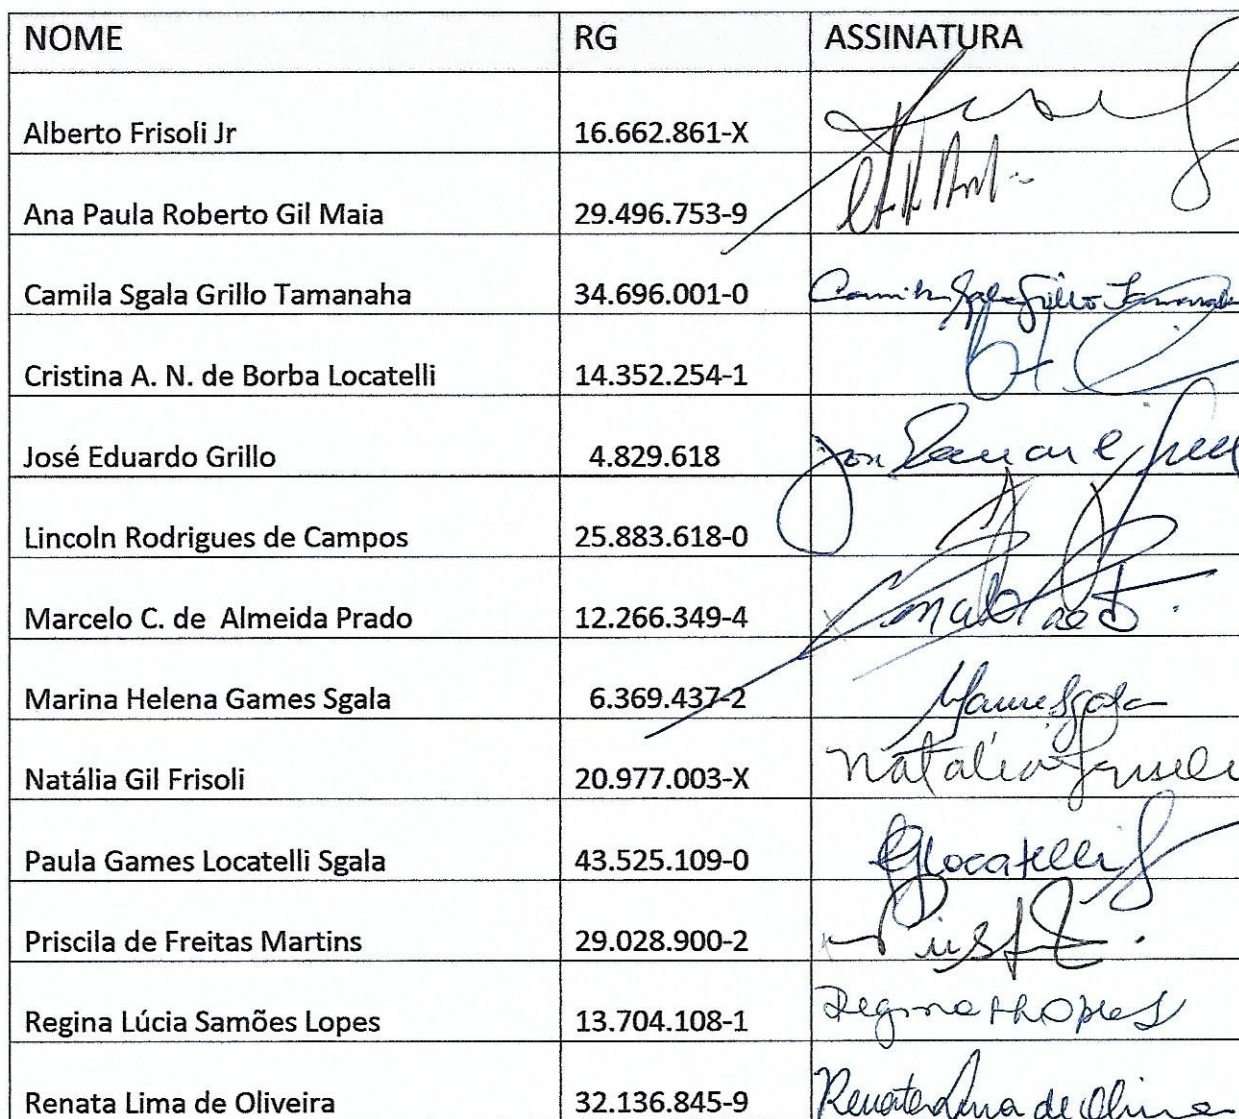 NOME RG ASSINATURA
Alberto Frisoli Jr 16.662.861-X
Ana Paula Roberto Gil Maia 29.496.753-9
Camila Sgala Grillo Tamanaha 34.696.001-0 Camila Sgala Grillo Tamanaha
Cristina A. N. de Borba Locatelli 14.352.254-1
José Eduardo Grillo 4.829.618
Lincoln Rodrigues de Campos 25.883.618-0
Marcelo C. de Almeida Prado 12.266.349-4
Marina Helena Games Sgala 6.369.437-2
Natália Gil Frisoli 20.977.003-X Natália Frisoli
Paula Games Locatelli Sgala 43.525.109-0 PGLocatelli
Priscila de Freitas Martins 29.028.900-2
Regina Lúcia Samões Lopes 13.704.108-1 Regina Lopes
Renata Lima de Oliveira 32.136.845-9 Renata Lima de Olive